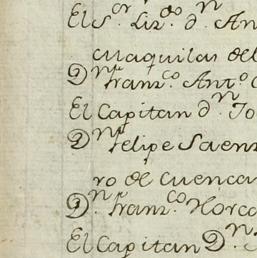 El S.or Liz.do d.n An
cuaquilas del
D.n Fran.co Ant.o C
El Capitan d.n Jo
D.n Felipe Saenz
ro de Cuenca
D.n Fran.co Horca
El Capitan D.n